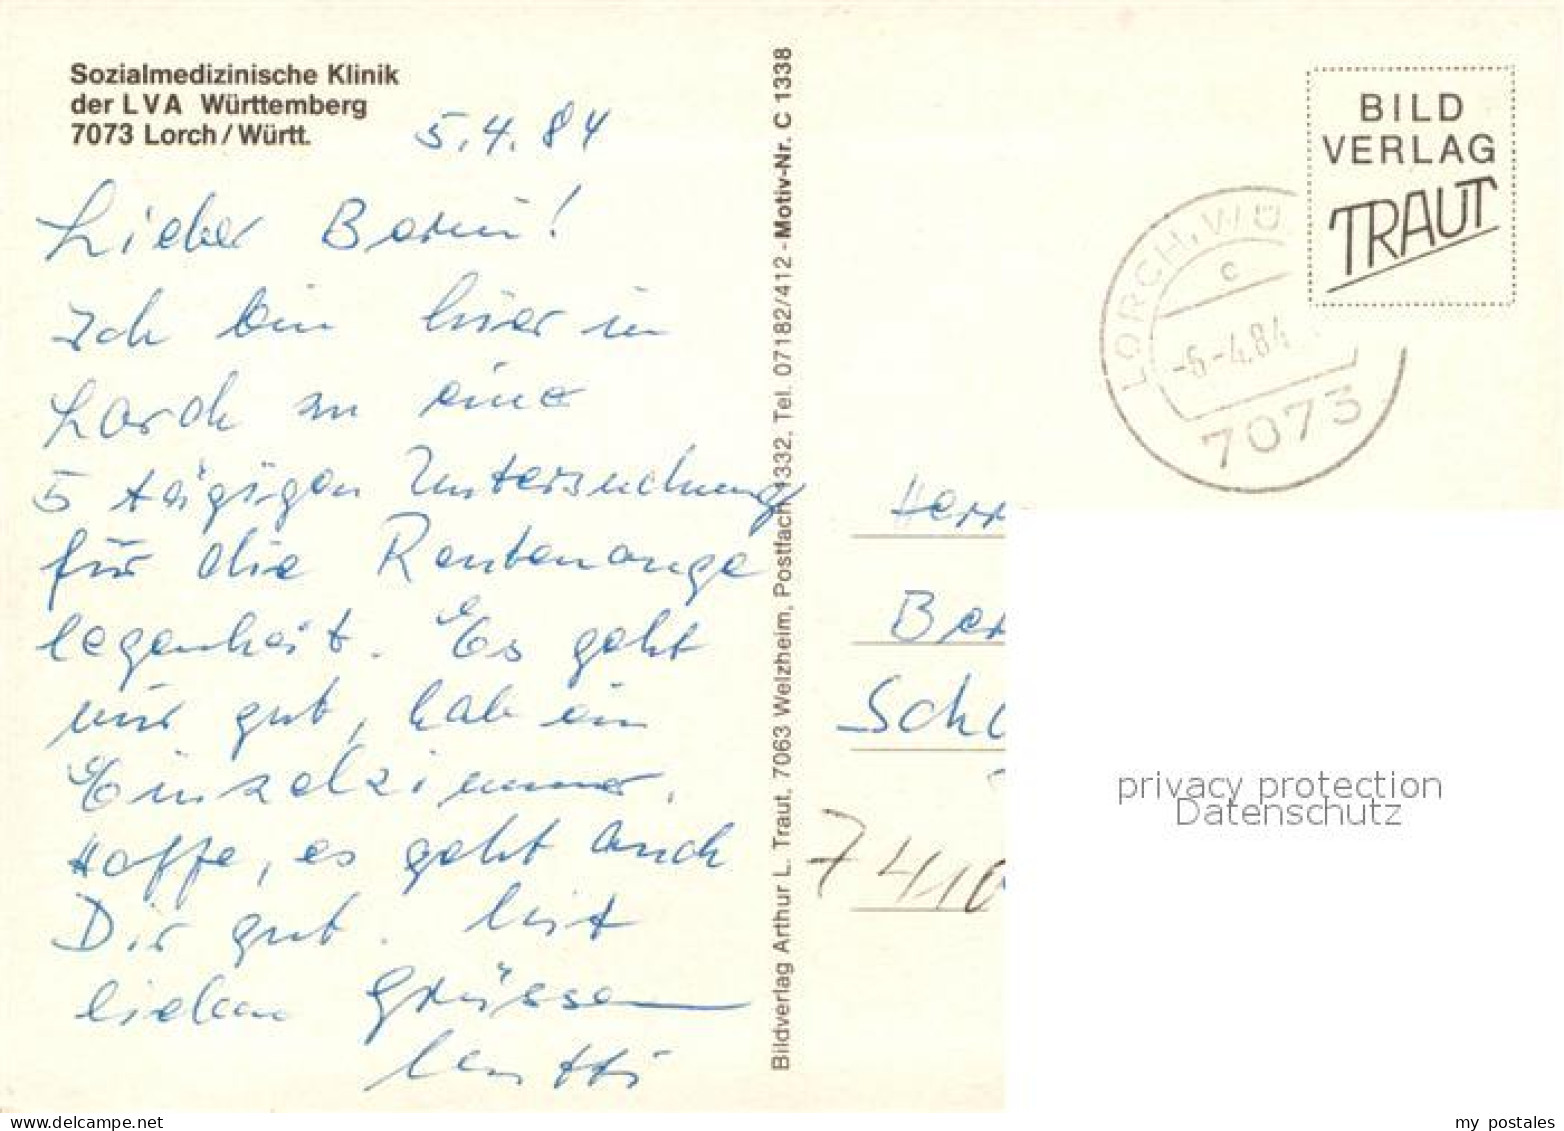 Sozialmedizinische Klinik
der LVA Württemberg
7073 Lorch/Württ.
5.4.84
Lieber
Ich bin hier in
Lorch zu eine
5 tägigen Untersuchung
für die Rentenange
legenheit. Es geht
mir gut, hab ein
Einzelzimmer.
Hoffe, es geht auch
Dir gut. Mit
lieben Grüssen
Bildverlag Arthur L. Traut, 7063 Welzheim, Postfach 1332, Tel. 07182/412 - Motiv-Nr. C 1338
BILD
VERLAG
TRAUT
LORCH, WÜ
c
-6-4.84
7073
Herr
Ber
Sch
7410
privacy protection
Datenschutz
delcampe.net
my_postales